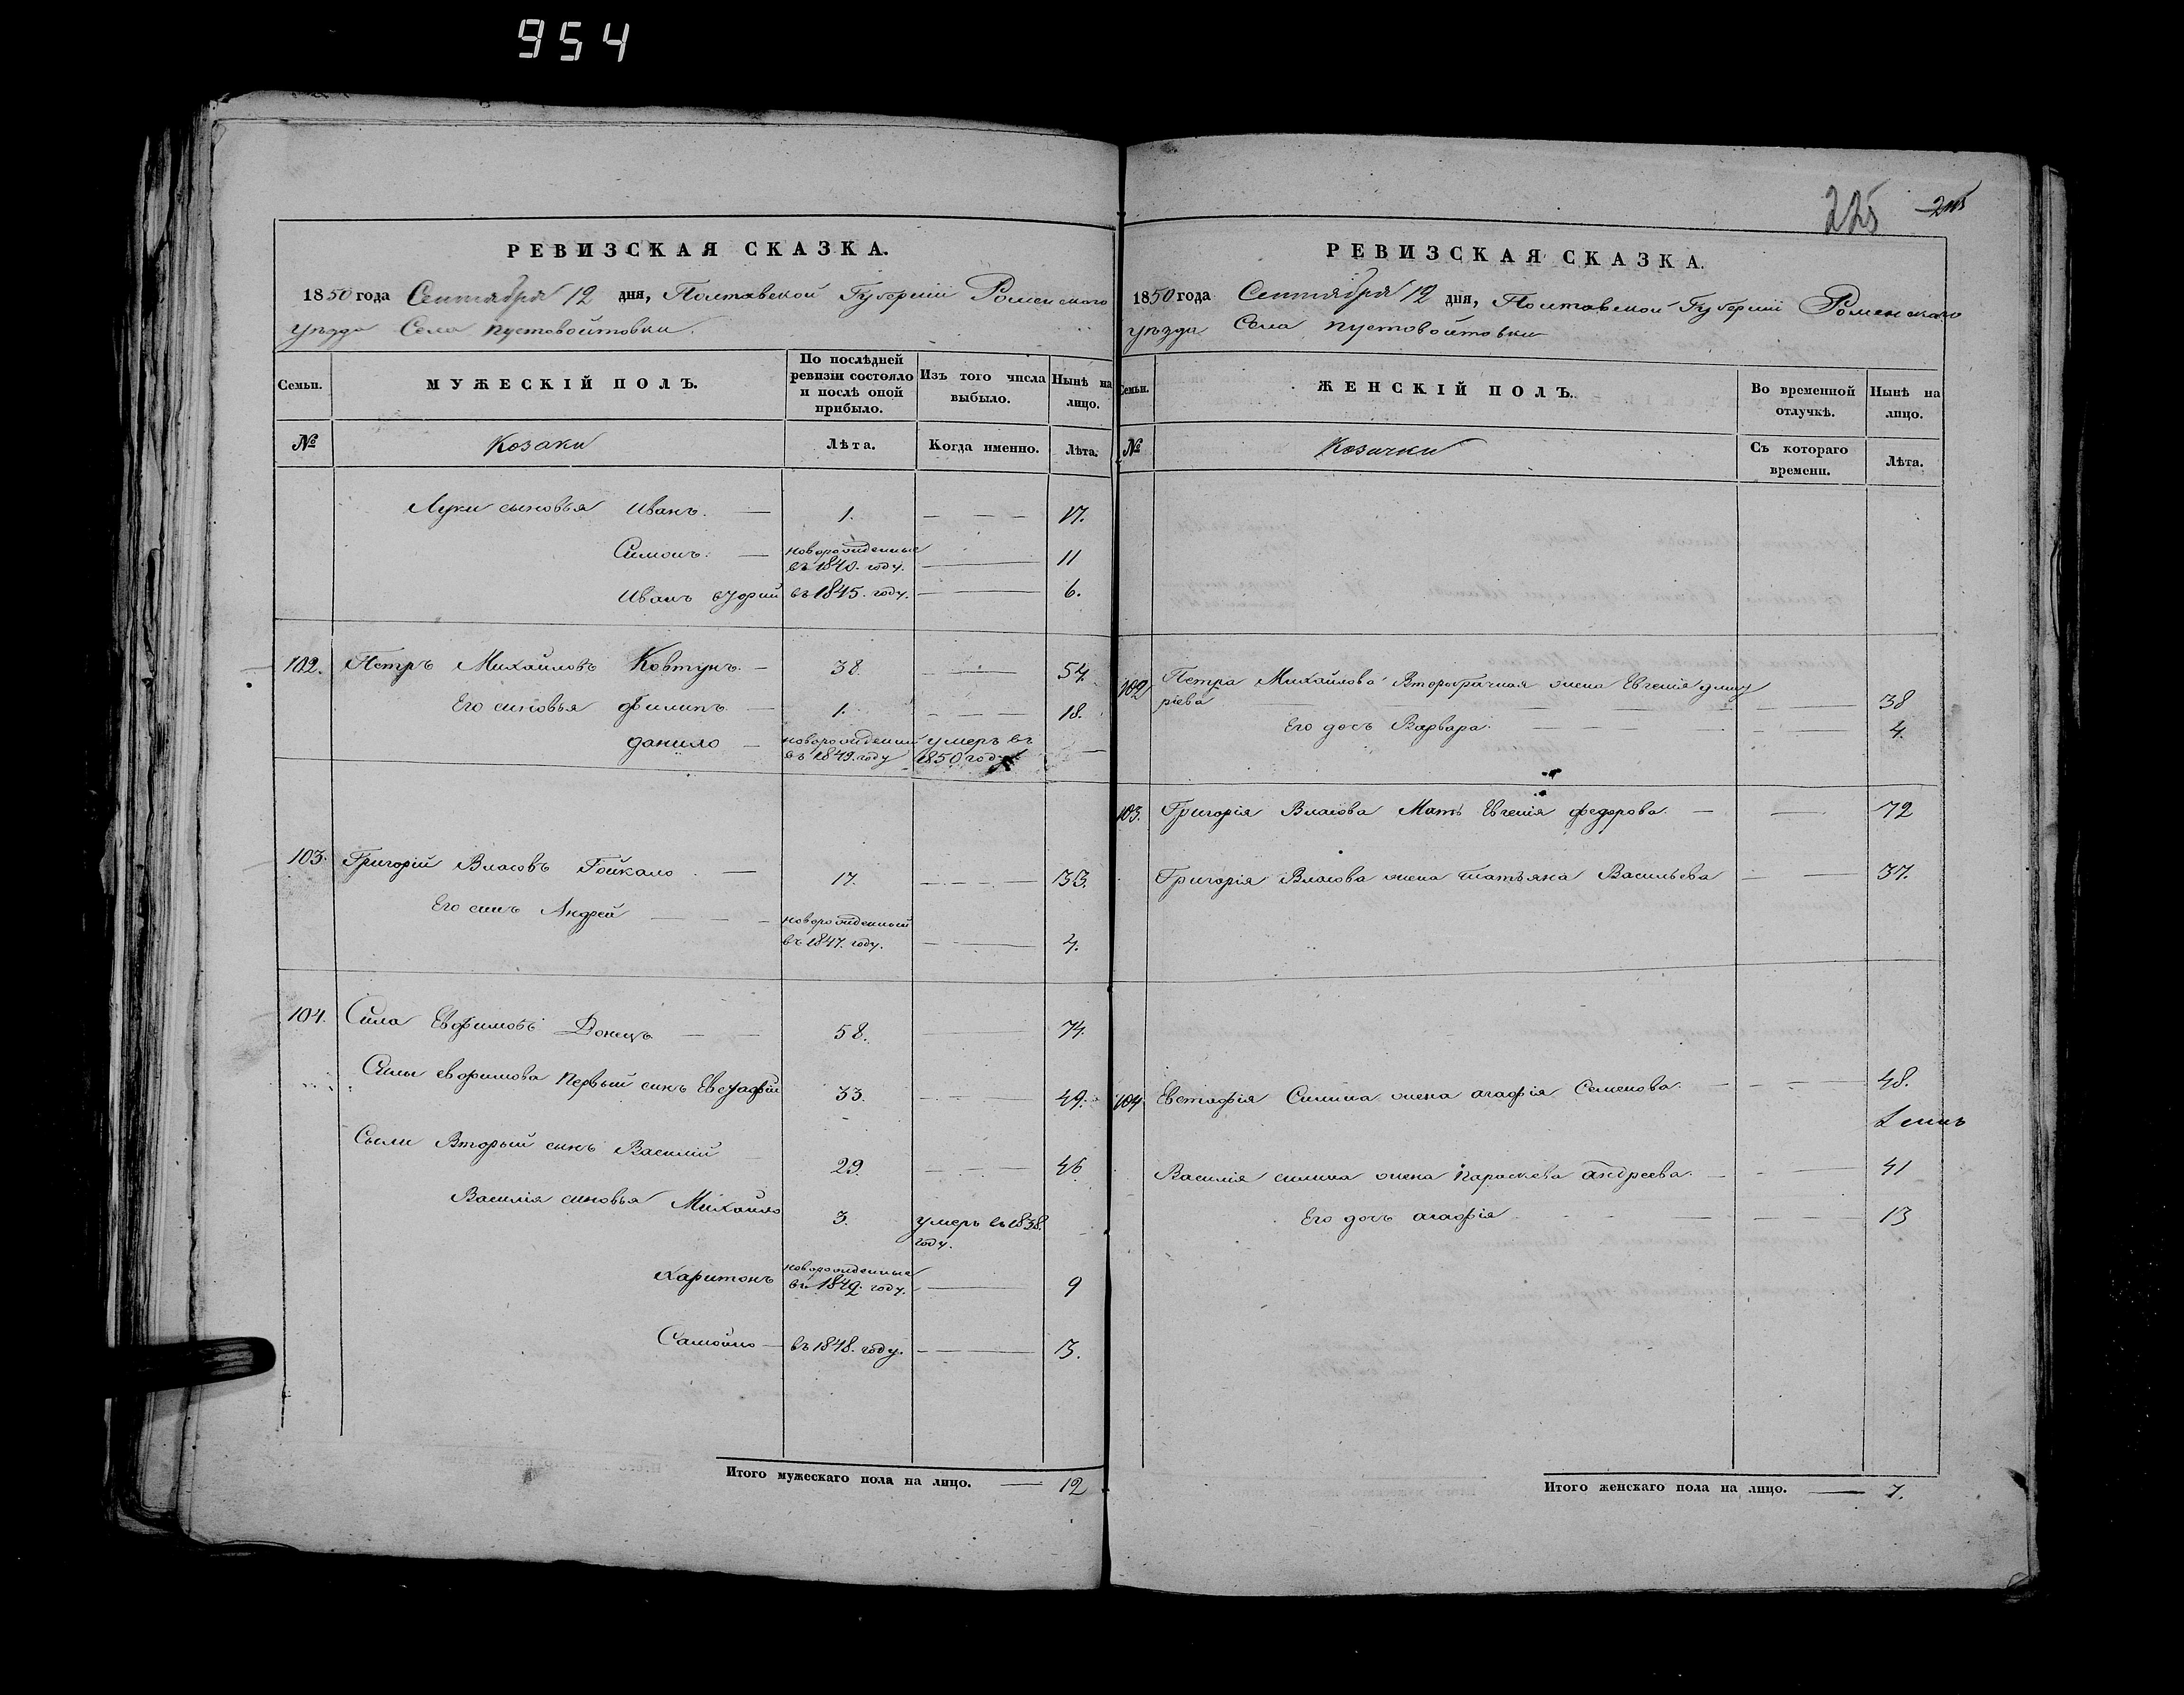 954
225
РЕВИЗСКАЯ СКАЗКА.
1850 года Сентября 12 дня, Полтавской Губерніи Роменского
уѣзда Села пустовойтовки.
Семьи.
МУЖЕСКІЙ ПОЛЪ.
По послѣдней ревизіи состояло и послѣ оной прибыло.
Изъ того числа выбыло.
Нынѣ на лицо.
№ Козаки Лѣта. Когда именно. Лѣта.
Луки сыновья Иванъ. — 1. — — — 17.
Симонъ. — новорожденные въ 1840. году. — 11
Иванъ вторій въ 1845. году. — 6.
102. Петръ Михайловъ Ковтунъ. — 38. — 54.
Его сыновья филипъ — 1. — 18.
данило — новорожденній въ 1849. году умеръ въ 1850 году —
103. Григорій Власовъ Гойкало. — 17. — 33.
Его синъ Андрей — новорожденный въ 1847. году. — 4.
104. Сила Евфимовъ Донецъ — 58. — 74.
Силы евфимова первый синъ Евстафій 33. — 49.
Сылы Вторый сынъ Василій 29. — 46
Василія синовья Михайло 3. умеръ въ 1838. году.
Харитонъ новорожденные въ 1842. году. — 9
Самойло — въ 1848. году. — 3.
Итого мужескаго пола на лицо. — 12
РЕВИЗСКАЯ СКАЗКА.
1850 года Сентября 12 дня, Полтавской Губерніи Роменскаго
уѣзда Села пустовойтовки
Семьи.
ЖЕНСКІЙ ПОЛЪ.
Во временной отлучкѣ.
Нынѣ на лицо.
№ Козачки Съ котораго времени. Лѣта.
102 Петра Михайлова Второбрачная жена Евгенія дмит
ріева — 38
Его дочь Варвара. — 4.
103. Григорія Власова Мать Евгенія федорова. — 72
Григорія Власова жена татьяна Васильева — 37.
104 Евстафія Силина жена агафія Семенова. — 48.
Василія силина жена параскева андреева. — 41
Его дочь агафія — 13
Итого женскаго пола на лицо. — 7.